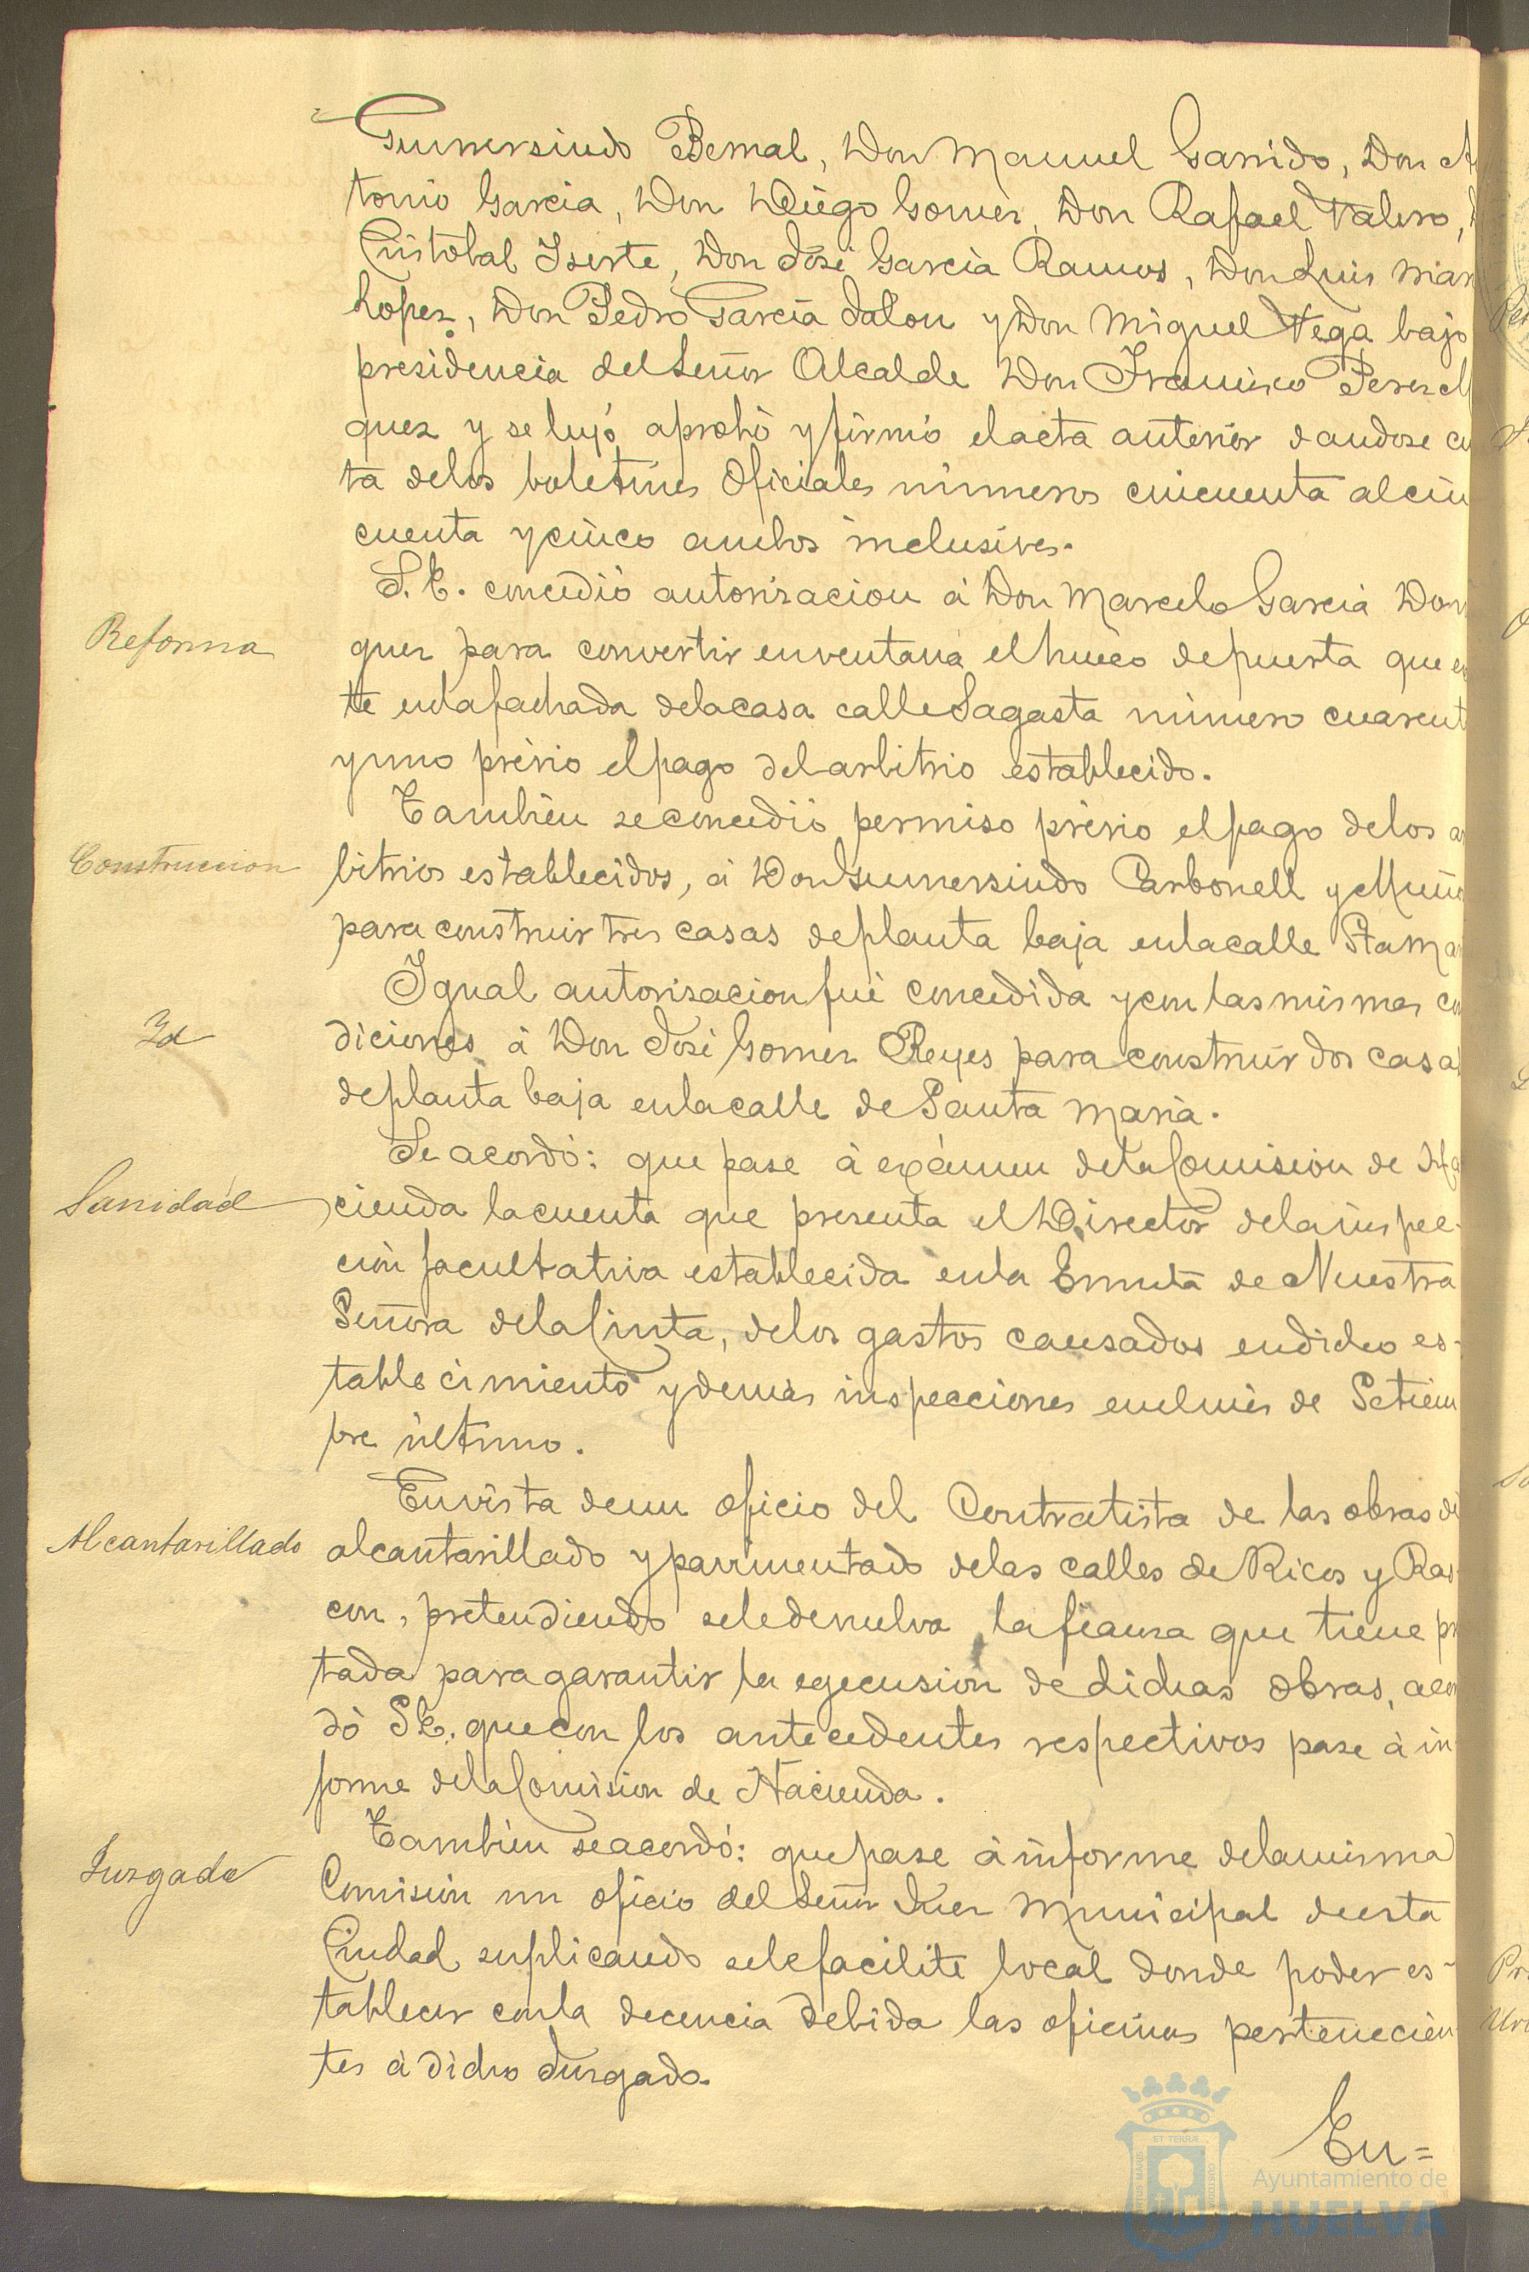 Gumersindo Bernal, Don Manuel Garrido, Don An
tonio Garcia, Don Diego Gomez, Don Rafael Valero, D
Cristobal Iserte, Don José Garcia Ramos, Don Luis Mar
Lopez, Don Pedro Garcia Jalon y Don Miguel Vega bajo
presidencia del Señor Alcalde Don Francisco Perez M
quez y se leyó aprobó y firmó el acta anterior dandose cu
ta de los boletines Oficiales números cincuenta al cin
cuenta y cinco ambos inclusives.
Reforma
S. E. concedió autorizacion á Don Marcelo Garcia Dom
guez para convertir en ventana el hueco de puerta que ex
te en la fachada de la casa calle Sagasta número cuarent
y uno prévio el pago del arbitrio establecido.
Construccion
Tambien se concedió permiso prévio el pago de los ar
bitrios establecidos, á Don Gumersindo Carbonell y Muño
para construir tres casas de planta baja en la calle Sta Ma
Id
Igual autorizacion fué concedida y con las mismas co
diciones á Don José Gomez Reyes para construir dos casas
de planta baja en la calle de Santa Maria.
Sanidad
Se acordó: que pase á exámen de la Comision de Ha
cienda la cuenta que presenta el Director de la inspec-
ción facultativa establecida en la Ermita de Nuestra
Señora de la Cinta, de los gastos causados en dicho es-
tablecimiento y demás inspecciones en el mes de Setiem
bre último.
Alcantarillado
En vista de un oficio del Contratista de las obras de
alcantarillado y pavimentado de las calles de Ricos y Ras-
con, pretendiendo se le devuelva la fianza que tiene pr
tada para garantir la egecusion de dichas obras, acor
dó S E. que con los antecedentes respectivos pase á in
forme de la Comision de Hacienda.
Juzgado
Tambien se acordó: que pase á informe de la misma
Comisión un oficio del Señor Juez Municipal de esta
Ciudad suplicando se le facilite local donde poder es-
tablecer con la decencia debida las oficinas pertenecien
tes á dicho Juzgado.
En=
Ayuntamiento de
HUELVA